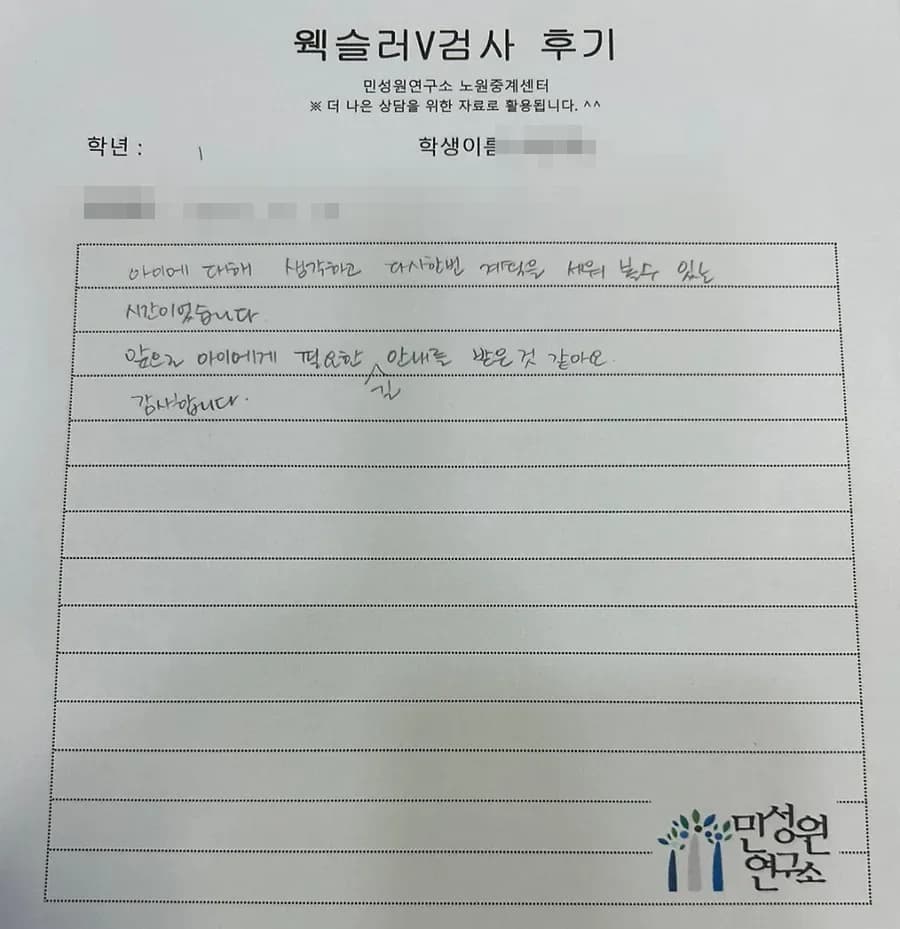 웩슬러V검사 후기
민성원연구소 노원중계센터
※ 더 나은 상담을 위한 자료로 활용됩니다. ^^
학년 : 1 학생이름
아이에 대해 생각하고 다시한번 계획을 세워 볼수 있는
시간이었습니다
앞으로 아이에게 필요한 길 안내를 받은것 같아요.
감사합니다.
민성원
연구소